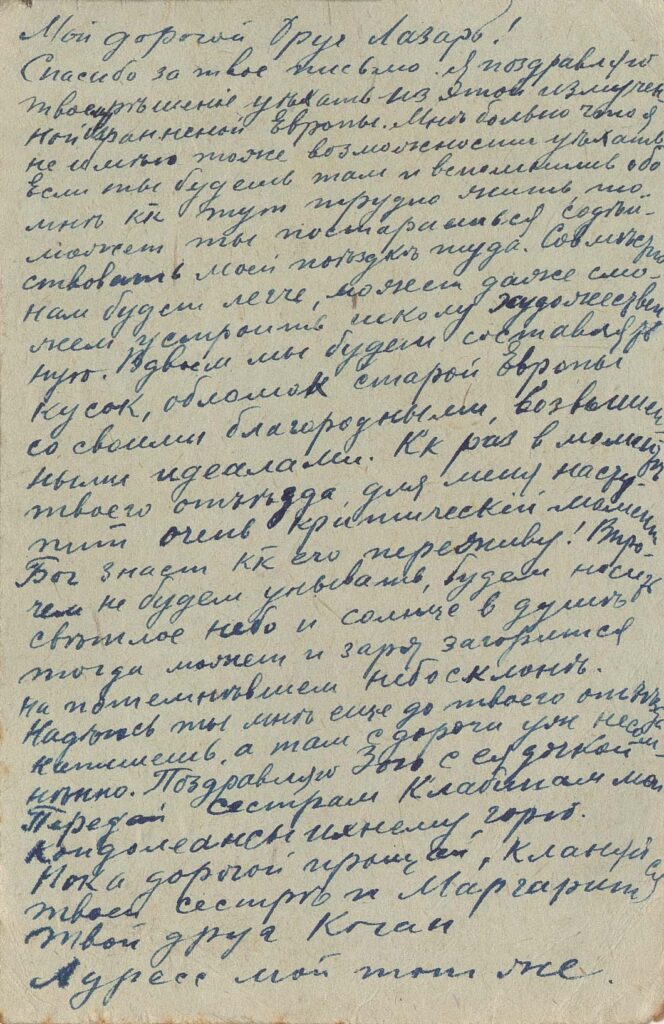 Мой дорогой Друг Лазарь!
Спасибо за твое письмо. Я поздравляю
твое рѣшенiе уѣхать из этой измучен
ной израненной Европы. Мнѣ больно что я
не имѣю тоже возможности уѣхать.
Если ты будешь там и вспомнишь обо
мнѣ кк тут трудно жить то
может ты постараешься содѣй-
ствовать моей поѣздкѣ туда. Совмѣстно
нам будет легче, может даже смо-
жем устроить школу художествен
ную. Вдвоем мы будем составлять
кусок, обломок старой Европы
со своими благородными, возвышен
ными идеалами. Кк раз в момент
твоего отъѣзда для меня насту-
пит очень критическiй момент
Бог знает кк его переживу! Впро-
чем не будем унывать, будем носить
свѣтлое небо и солнце в душѣ
тогда может и заря загорится
на потемнѣвшем небосклонѣ.
Надѣюсь ты мнѣ еще до твоего отъѣзда
напишешь, а там с дороги уж несом-
нѣнно. Поздравляю Зою с ея дочкой
Передай сестрам Клабинам мои
кондолеансы ихнему горю.
Пока дорогой прощай, кланяйся
твоей сестрѣ и Маргаритѣ
Твой друг Коган
Адресс мой тот же.